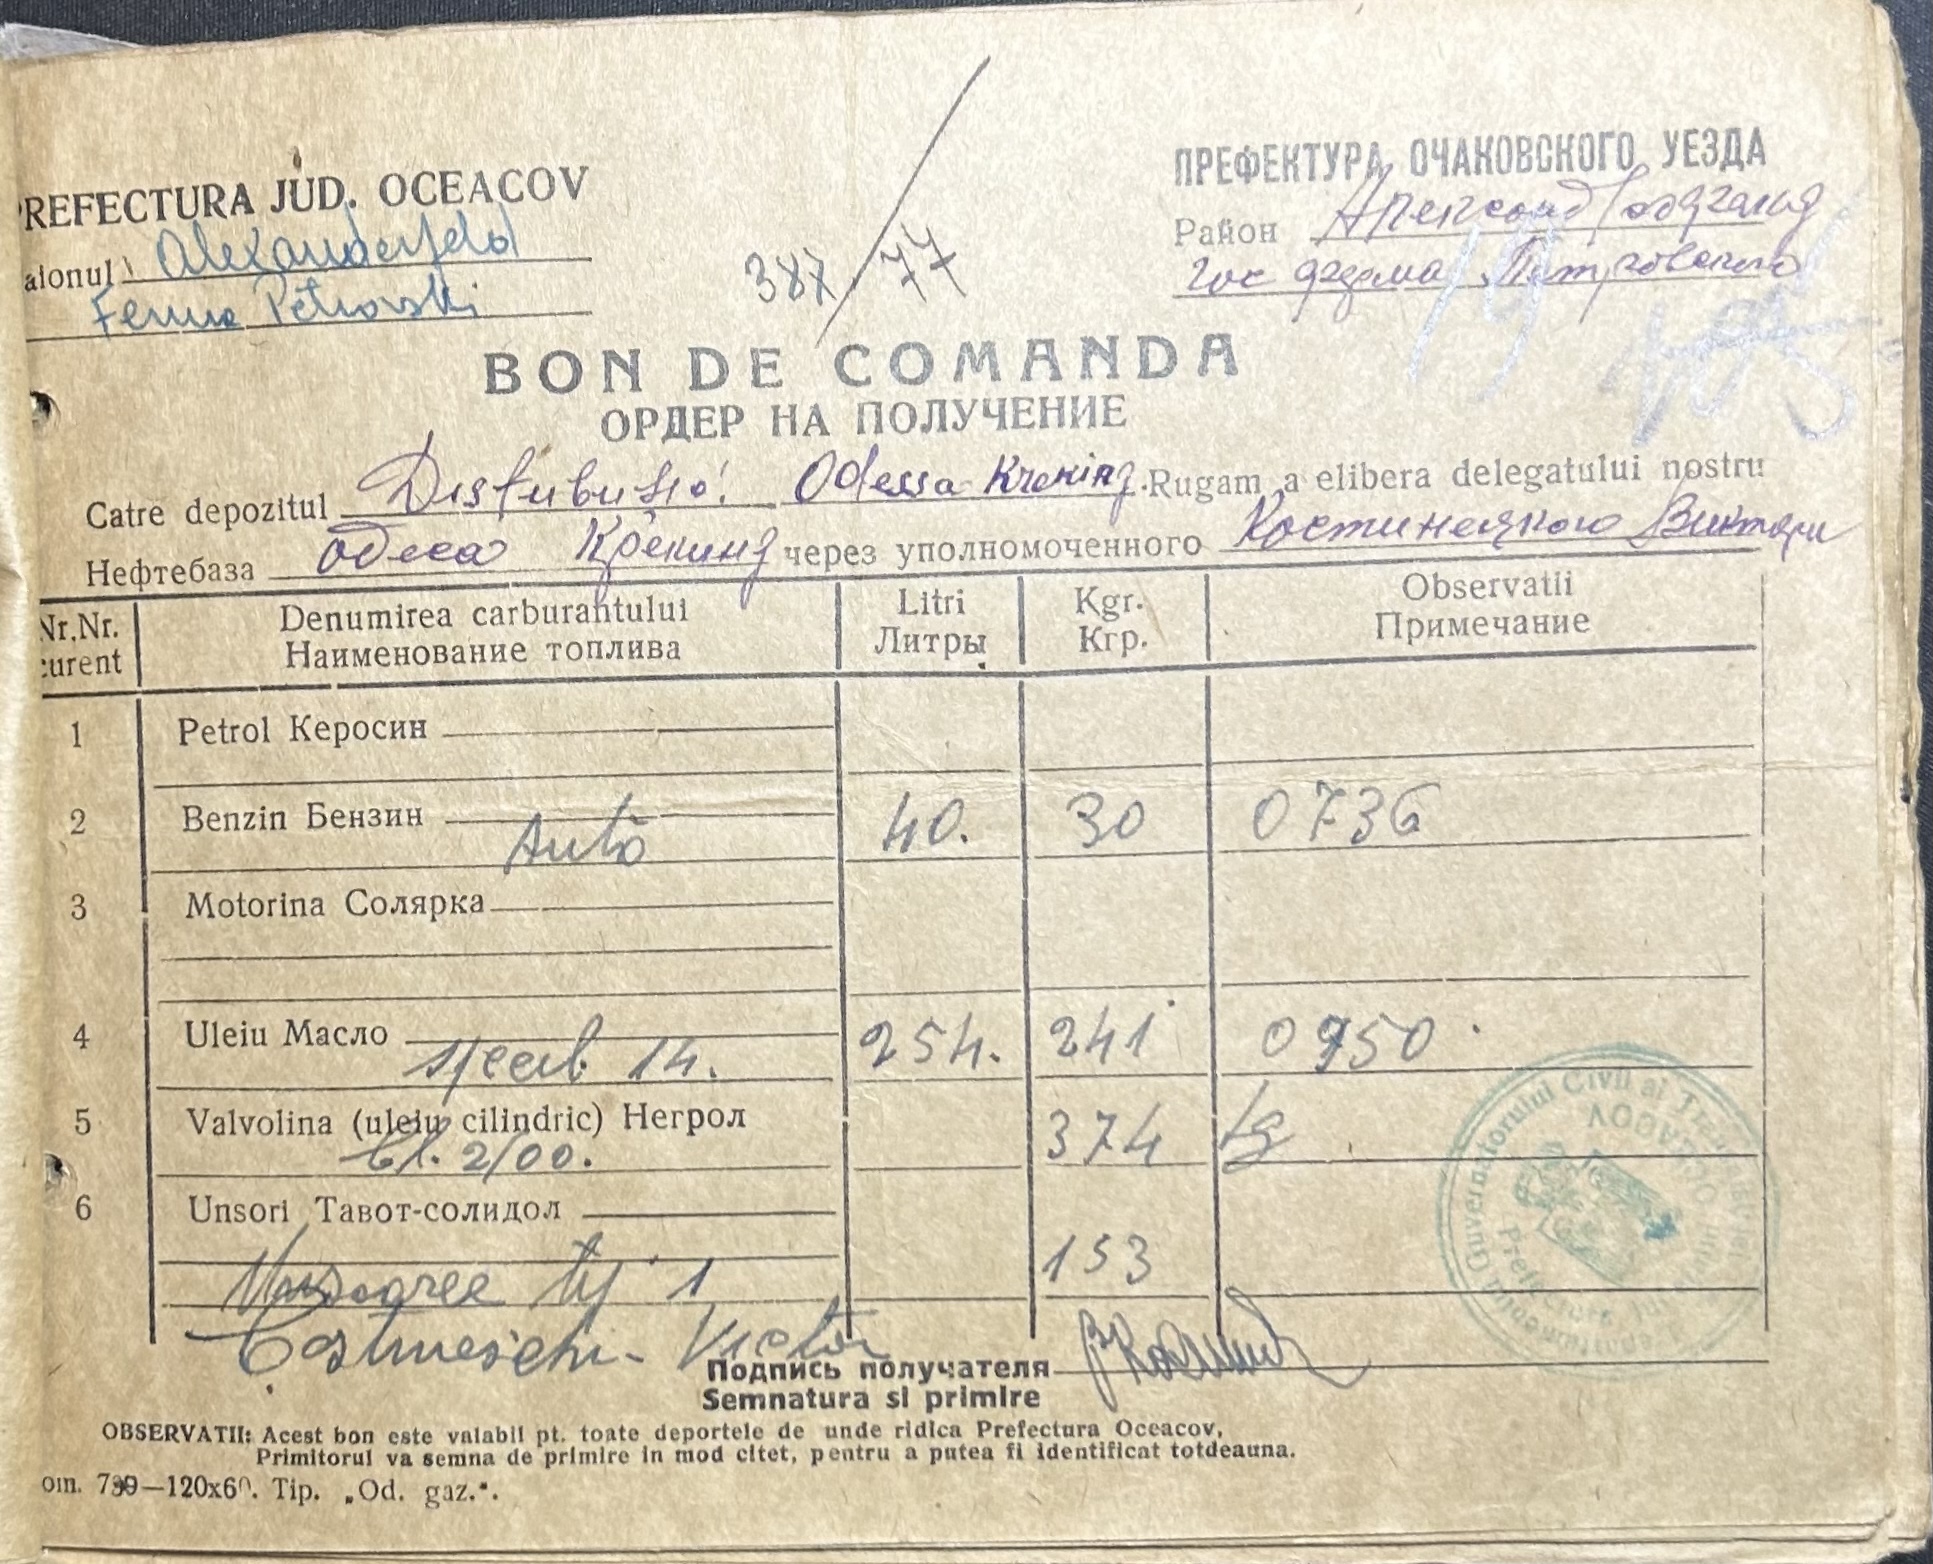 PREFECTURA JUD. OCEACOV
aionul Alexanderfeld
Ferma Petrovski
387/77
ПРЕФЕКТУРА ОЧАКОВСКОГО УЕЗДА
Район
гос ферма Петровского
BON DE COMANDA
ОРДЕР НА ПОЛУЧЕНИЕ
Catre depozitul Odessa Kreking. Rugam a elibera delegatului nostru
Нефтебаза Одеса Крекинг через уполномоченного Костинецкого Виктора
Nr.Nr. curent Denumirea carburantului Наименование топлива Litri Литры Kgr. Кгр. Observatii Примечание
1 Petrol Керосин
2 Benzin Бензин Auto 40. 30 0736
3 Motorina Солярка
4 Uleiu Масло 14. 254. 241 0950
5 Valvolina (uleiu cilindric) Негрол 2/00. 374 kg
6 Unsori Тавот-солидол
1 153
Victor
Подпись получателя
Semnatura si primire
OBSERVATII: Acest bon este valabil pt. toate deportele de unde ridica Prefectura Oceacov,
Primitorul va semna de primire in mod citet, pentru a putea fi identificat totdeauna.
om. 739—120x60. Tip. „Od. gaz.“.
Guvernatorului Civil al
OCEACOV